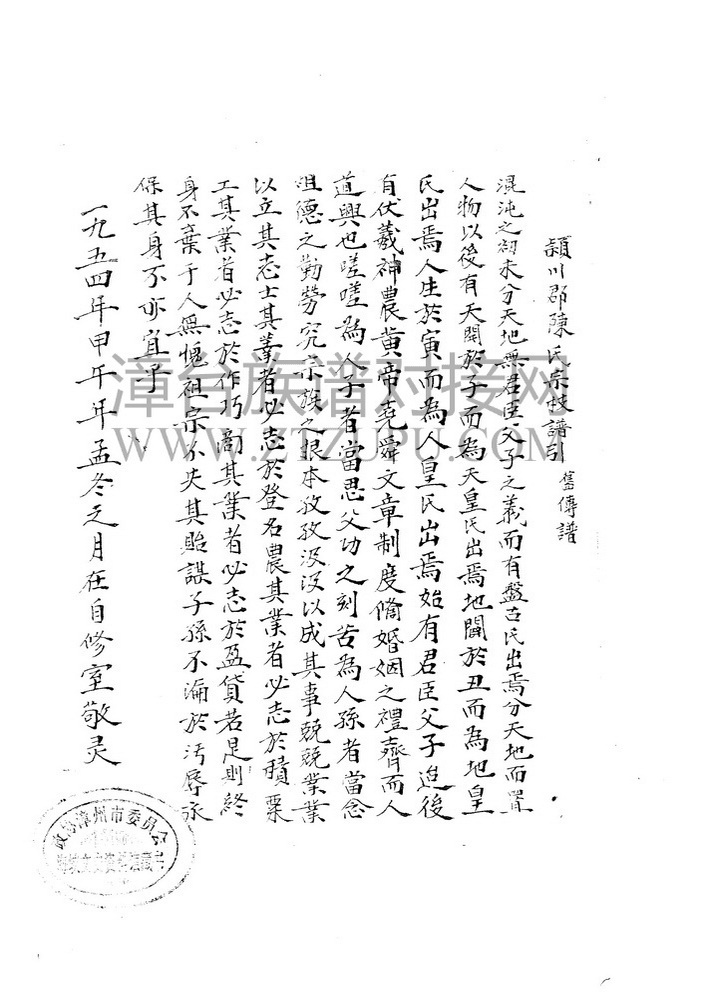 頴川郡陳氏宗枝譜引 舊傳譜
混沌之初未分天地無君臣父子之義而有盤古氏出焉分天地而置
人物以後有天開於子而為天皇氏出焉地闢於丑而為地皇
氏出焉人生於寅而為人皇氏出焉始有君臣父子迨後
有伏羲神農黃帝堯舜文章制度脩婚姻之禮齊而人
道興也嗟嗟為人子者當思父功之刻苦為人孫者當念
祖德之勤勞究宗族之根本孜孜汲汲以成其事兢兢業業
以立其志士其業者必志於登名農其業者必志於積粟
工其業者必志於作巧商其業者必志於盈貸若是則終
身不棄于人無愧祖宗不失其貽謀子孫不淪於污辱永
保其身不亦宜乎
一九五四年甲午年孟冬之月在自修室敬灵
漳台族谱对接网
WWW.ZTZUPU.COM
漳州市委员会